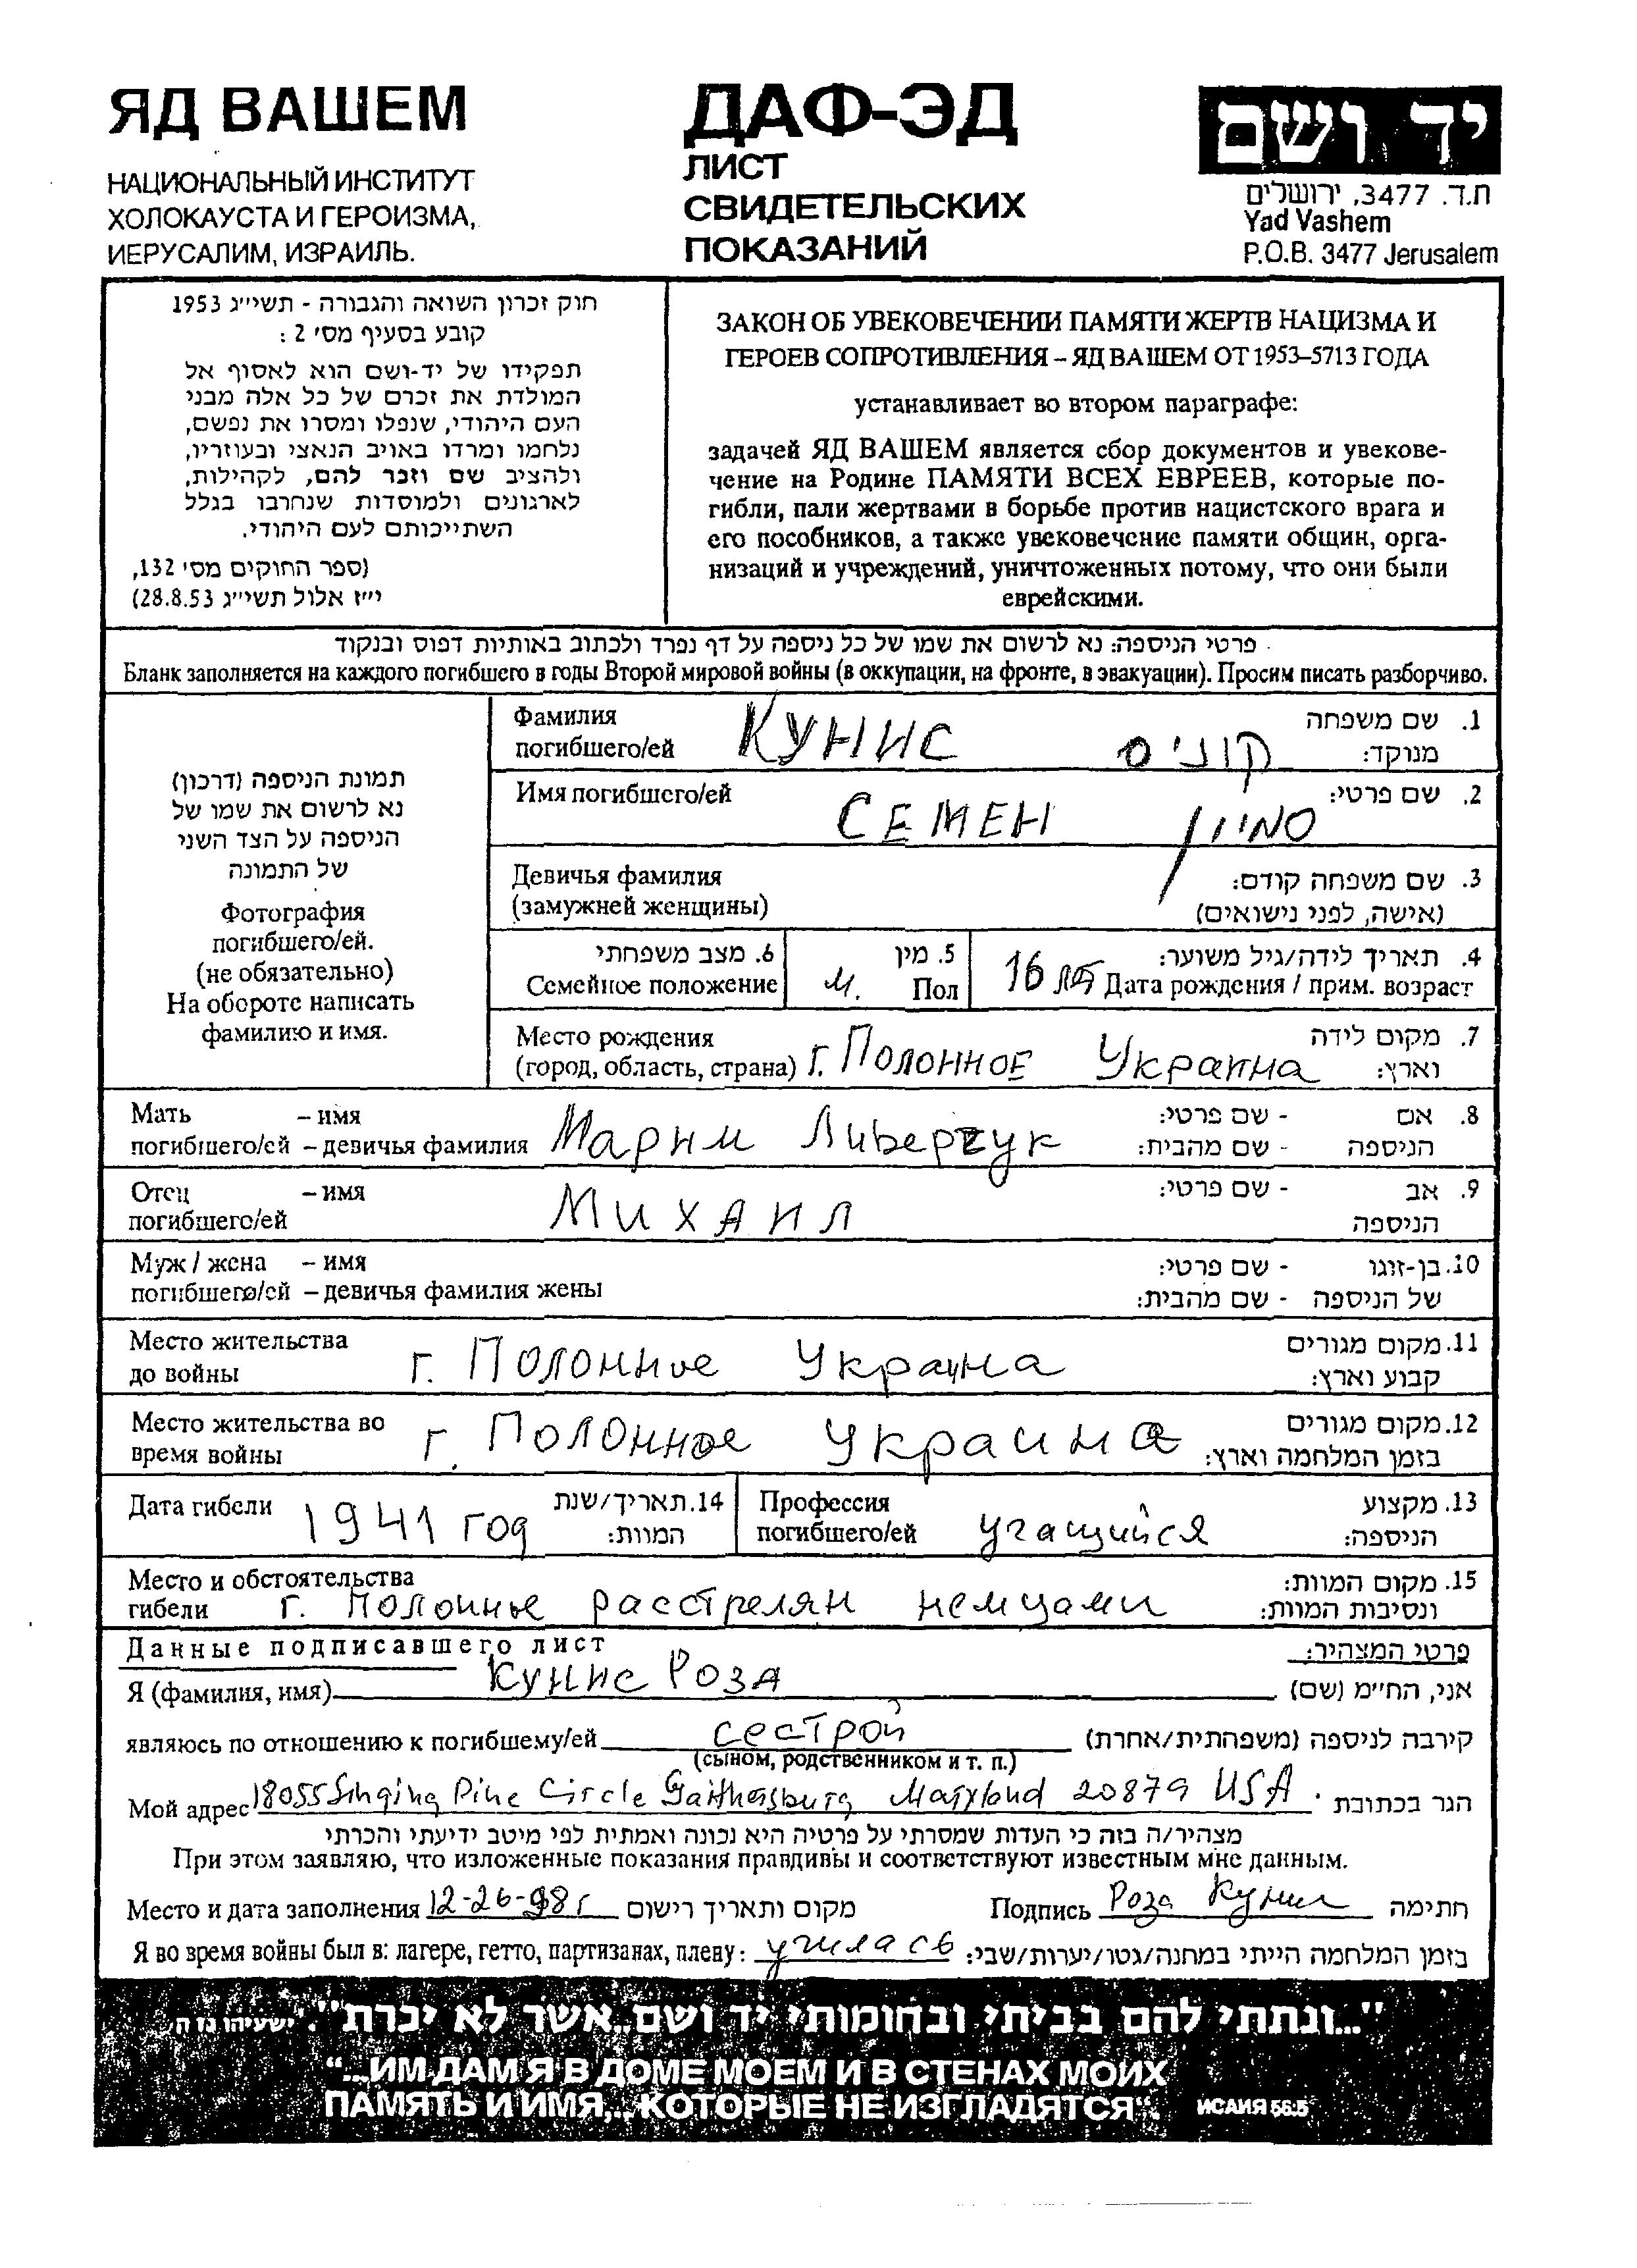 ЯД ВАШЕМ
НАЦИОНАЛЬНЫЙ ИНСТИТУТ
ХОЛОКАУСТА И ГЕРОИЗМА,
ИЕРУСАЛИМ, ИЗРАИЛЬ.
ДАФ-ЭД
ЛИСТ
СВИДЕТЕЛЬСКИХ
ПОКАЗАНИЙ
יד ושם
ת.ד. 3477, ירושלים
Yad Vashem
P.O.B. 3477 Jerusalem
חוק זכרון השואה והגבורה - תשי״ג 1953
קובע בסעיף מס׳ 2 :
תפקידו של יד-ושם הוא לאסוף אל
המולדת את זכרם של כל אלה מבני
העם היהודי, שנפלו ומסרו את נפשם,
נלחמו ומרדו באויב הנאצי ובעוזריו,
ולהציב שם וזכר להם, לקהילות,
לארגונים ולמוסדות שנחרבו בגלל
השתייכותם לעם היהודי.
(ספר החוקים מס׳ 132,
י״ז אלול תשי״ג 28.8.53)
ЗАКОН ОБ УВЕКОВЕЧЕНИИ ПАМЯТИ ЖЕРТВ НАЦИЗМА И
ГЕРОЕВ СОПРОТИВЛЕНИЯ – ЯД ВАШЕМ ОТ 1953–5713 ГОДА
устанавливает во втором параграфе:
задачей ЯД ВАШЕМ является сбор документов и увекове-
чение на Родине ПАМЯТИ ВСЕХ ЕВРЕЕВ, которые по-
гибли, пали жертвами в борьбе против нацистского врага и
его пособников, а также увековечение памяти общин, орга-
низаций и учреждений, уничтоженных потому, что они были
еврейскими.
פרטי הניספה: נא לרשום את שמו של כל ניספה על דף נפרד ולכתוב באותיות דפוס ובנקוד
Бланк заполняется на каждого погибшего в годы Второй мировой войны (в оккупации, на фронте, в эвакуации). Просим писать разборчиво.
תמונת הניספה (דרכון)
נא לרשום את שמו של
הניספה על הצד השני
של התמונה
Фотография
погибшего/ей.
(не обязательно)
На обороте написать
фамилию и имя.
Фамилия 1. שם משפחה
погибшего/ей КУНИС קוניס מנוקד:
Имя погибшего/ей СЕМЕН סמיון 2. שם פרטי:
Девичья фамилия 3. שם משפחה קודם:
(замужней женщины) (אישה, לפני נישואים)
6. מצב משפחתי 5. מין 4. תאריך לידה/גיל משוער:
Семейное положение м. Пол 16 лет Дата рождения / прим. возраст
Место рождения 7. מקום לידה
(город, область, страна) г. Полонное Украина וארץ:
Мать – имя 8. אם - שם פרטי:
погибшего/ей – девичья фамилия Марим Ливерчук הניספה - שם מהבית:
Отец – имя 9. אב - שם פרטי:
погибшего/ей МИХАИЛ הניספה
Муж / жена – имя 10. בן-זוגו - שם פרטי:
погибшего/ей – девичья фамилия жены של הניספה - שם מהבית:
Место жительства 11. מקום מגורים
до войны г. Полонное Украина קבוע וארץ:
Место жительства во 12. מקום מגורים
время войны г. Полонное Украина בזמן המלחמה וארץ:
Дата гибели 1941 год 14. תאריך/שנת
המוות:
Профессия 13. מקצוע
погибшего/ей учащийся הניספה:
Место и обстоятельства 15. מקום המוות:
гибели г. Полонное расстрелян немцами ונסיבות המוות:
Данные подписавшего лист פרטי המצהיר:
Я (фамилия, имя) КУНИС РОЗА אני, החי״מ (שם)
являюсь по отношению к погибшему/ей сестрой קירבה לניספה (משפחתית/אחרת)
(сыном, родственником и т. п.)
Мой адрес 18055 Singing Pine Circle Gaithersburg Maryland 20879 USA הגר בכתובת
מצהיר/ה בזה כי העדות שמסרתי על פרטיה היא נכונה ואמתית לפי מיטב ידיעתי והכרתי
При этом заявляю, что изложенные показания правдивы и соответствуют известным мне данным.
Место и дата заполнения 12-26-98 г מקום ותאריך רישום Подпись Роза Кунис חתימה
Я во время войны был в: лагере, гетто, партизанах, плену: училась בזמן המלחמה הייתי במחנה/גטו/יערות/שבי:
"...ונתתי להם בביתי ובחומותי יד ושם...אשר לא יכרת". ישעיהו נו ה
“...ИМ ДАМ Я В ДОМЕ МОЕМ И В СТЕНАХ МОИХ
ПАМЯТЬ И ИМЯ,...КОТОРЫЕ НЕ ИЗГЛАДЯТСЯ“. ИСАИЯ 56:5